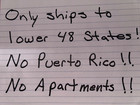 Only ships to
lower 48 States!
No Puerto Rico!!
No Apartments!!